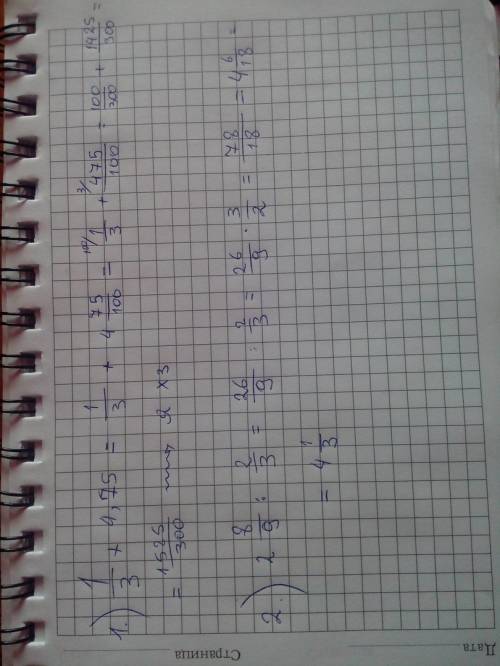 1.) 1/3 + 4,75 = 1/3 + 4 75/100 = 100/ 1/3 + 3/ 475/100 = 100/300 + 1425/300 =
= 1525/300
2.) 2 8/9 : 2/3 = 26/9 : 2/3 = 26/9 · 3/2 = 78/18 = 4 6/18 =
= 4 1/3
Страница
Дата